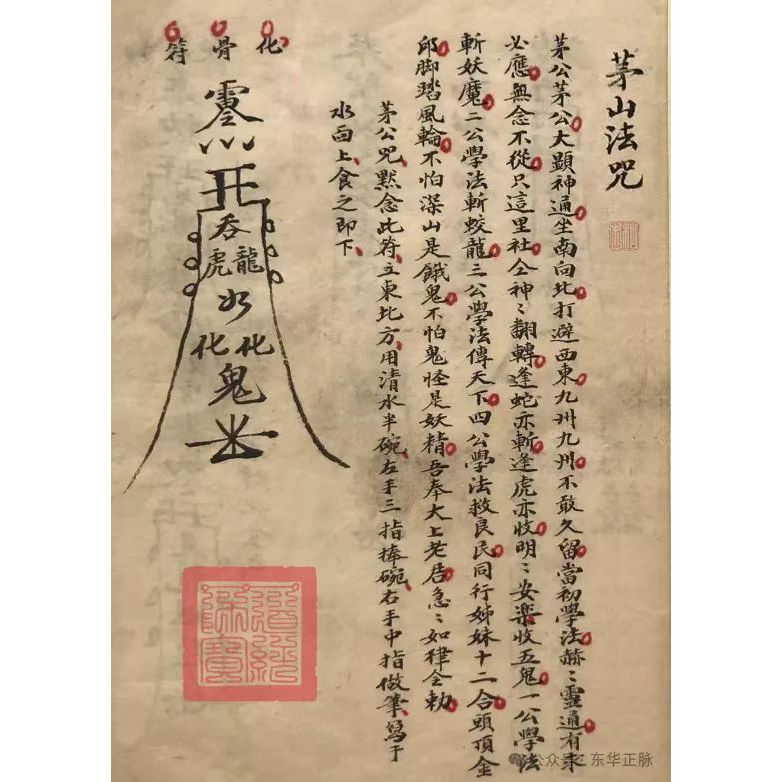 茅山法咒
茅公茅公大顯神通坐南向北打避西東九州九州不敢久留當初學法赫〻靈通有求
必應無念不從只這里社仝神〻翻轉逢蛇亦斬逢虎亦收明〻安樂收五鬼一公學法
斬妖魔二公學法斬蛟龍三公學法傳天下四公學法救良民同行姊妹十二合頭頂金
邱脚踏風輪不怕深山是餓鬼不怕鬼怪是妖精吾奉大上老君急〻如律令勅
茅公咒、默念此符、立東北方、用清水半碗、左手三指捧碗、右手中指做筆、寫于
水面上、食之即下、
化骨符
吞
龍虎
水
化化
鬼
道經師寶
公众号·东华正脉